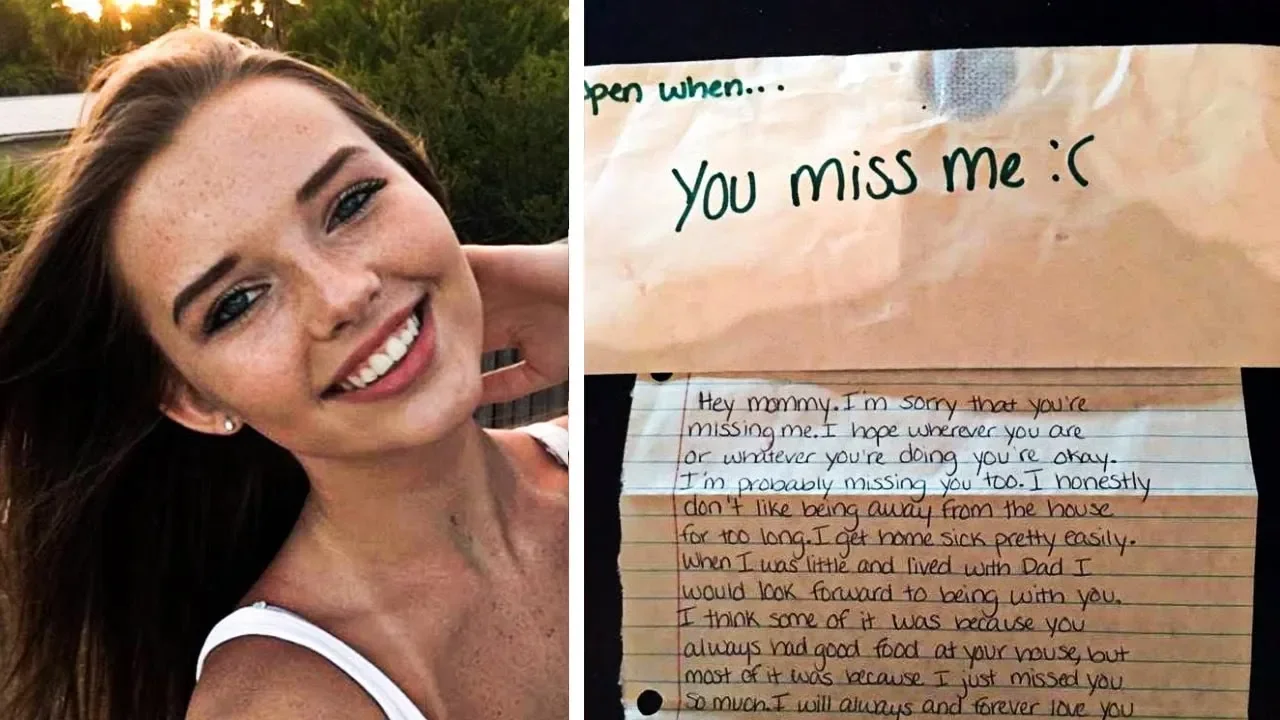 pen when...
You miss me :(
Hey mommy. I'm sorry that you're
missing me. I hope wherever you are
or whatever you're doing you're okay.
I'm probably missing you too. I honestly
don't like being away from the house
for too long. I get home sick pretty easily.
When I was little and lived with Dad I
would look forward to being with you.
I think some of it was because you
always had good food at your house, but
most of it was because I just missed you
so much. I will always and forever love you